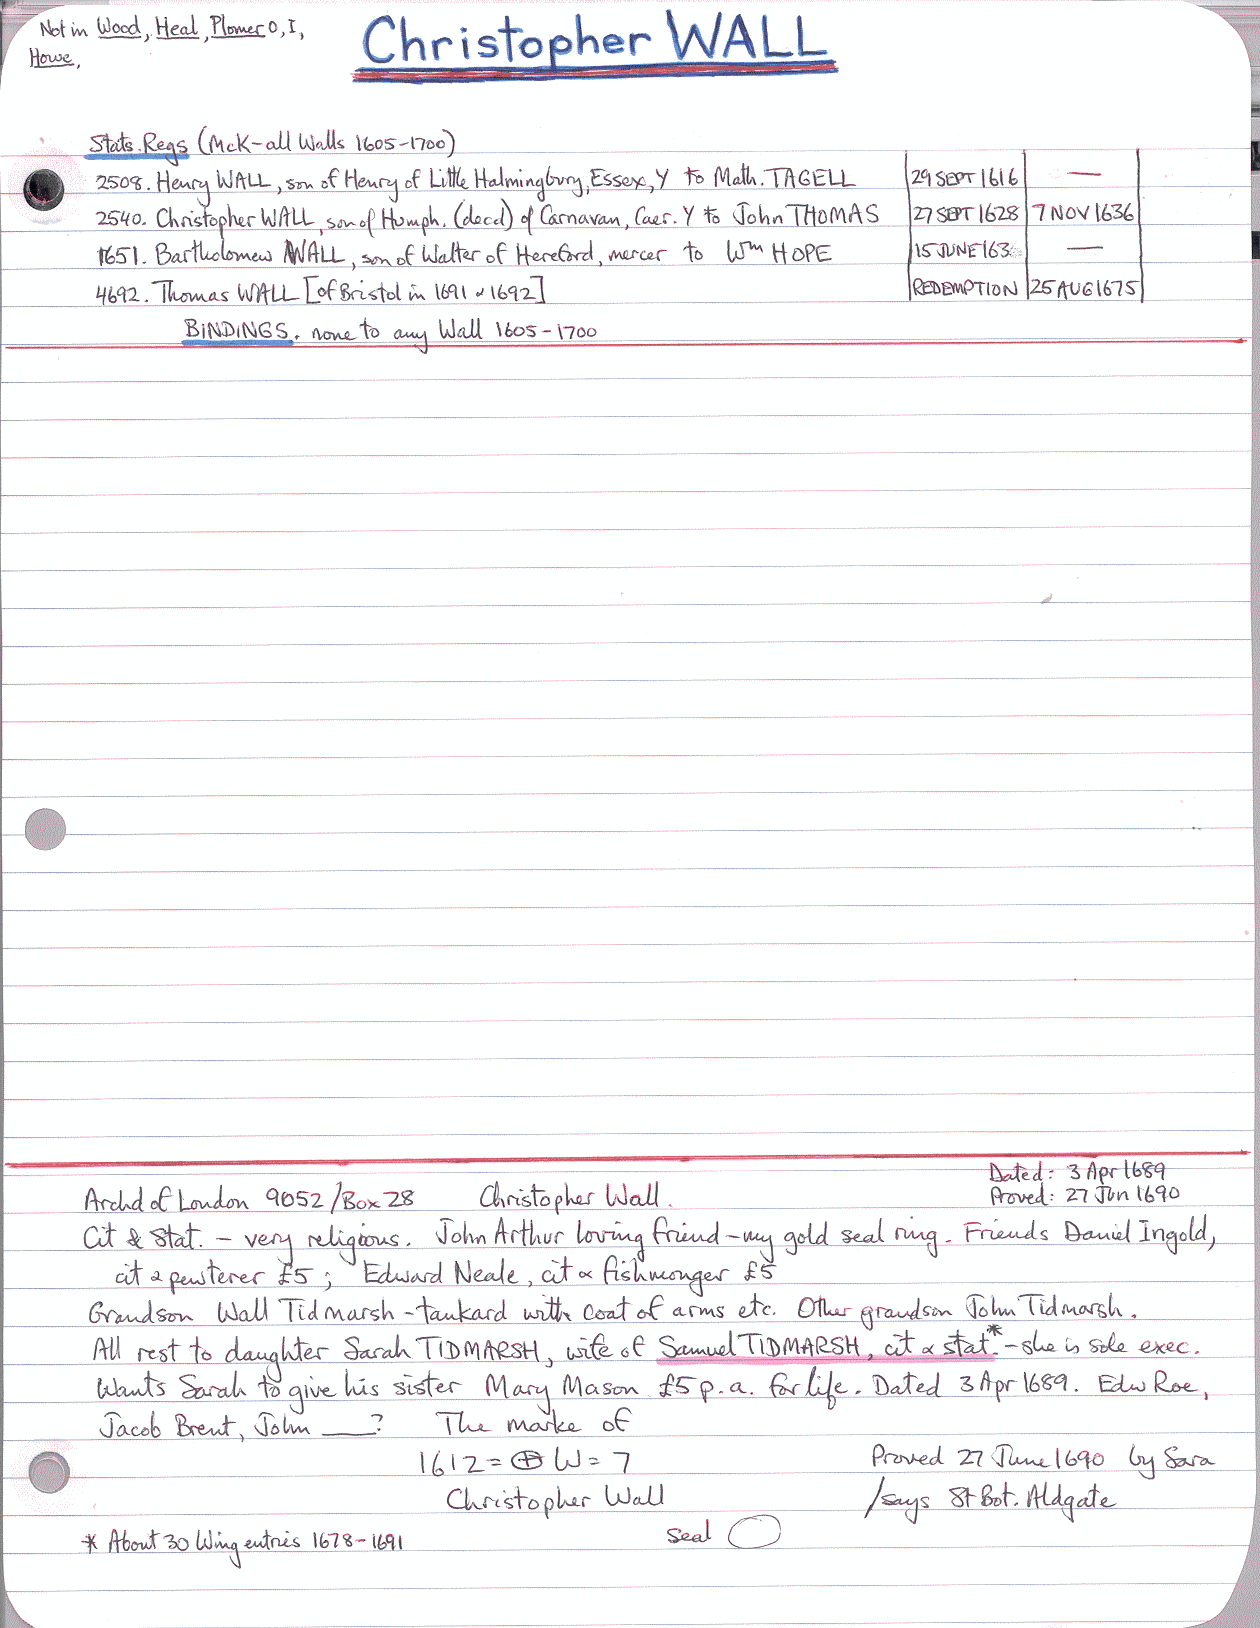 Not in Wood, Heal, Plomer O, I,
Howe,
Christopher WALL
Stats. Regs (McK - all Walls 1605-1700)
2508. Henry WALL, son of Henry of Little Halmingbury, Essex, Y to Math. TAGELL 29 SEPT 1616 —
2540. Christopher WALL, son of Humph. (decd) of Carnavan, Caer. Y to John THOMAS 27 SEPT 1628 7 NOV 1636
1651. Bartholomew WALL, son of Walter of Hereford, mercer to Wm HOPE 15 JUNE 163
4692. Thomas WALL [of Bristol in 1691 & 1692] REDEMPTION 25 AUG 1675
BINDINGS. none to any Wall 1605-1700
Dated: 3 Apr 1689
Archd of London 9052/Box 28 Christopher Wall. Proved: 27 Jun 1690
Cit & Stat. - very religious. John Arthur loving friend - my gold seal ring. Friends Daniel Ingold,
cit & pewterer £5; Edward Neale, cit & fishmonger £5
Grandson Wall Tidmarsh - tankard with coat of arms etc. Other grandson John Tidmarsh.
All rest to daughter Sarah TIDMARSH, wife of Samuel TIDMARSH, cit & stat.* - she is sole exec.
Wants Sarah to give his sister Mary Mason £5 p.a. for life. Dated 3 Apr 1689. Edw Roe,
Jacob Brent, John ___? The marke of
1612 = ⊕ W = 7 Proved 27 June 1690 by Sara
Christopher Wall /says St Bot. Aldgate
seal
* About 30 Wing entries 1678-1691